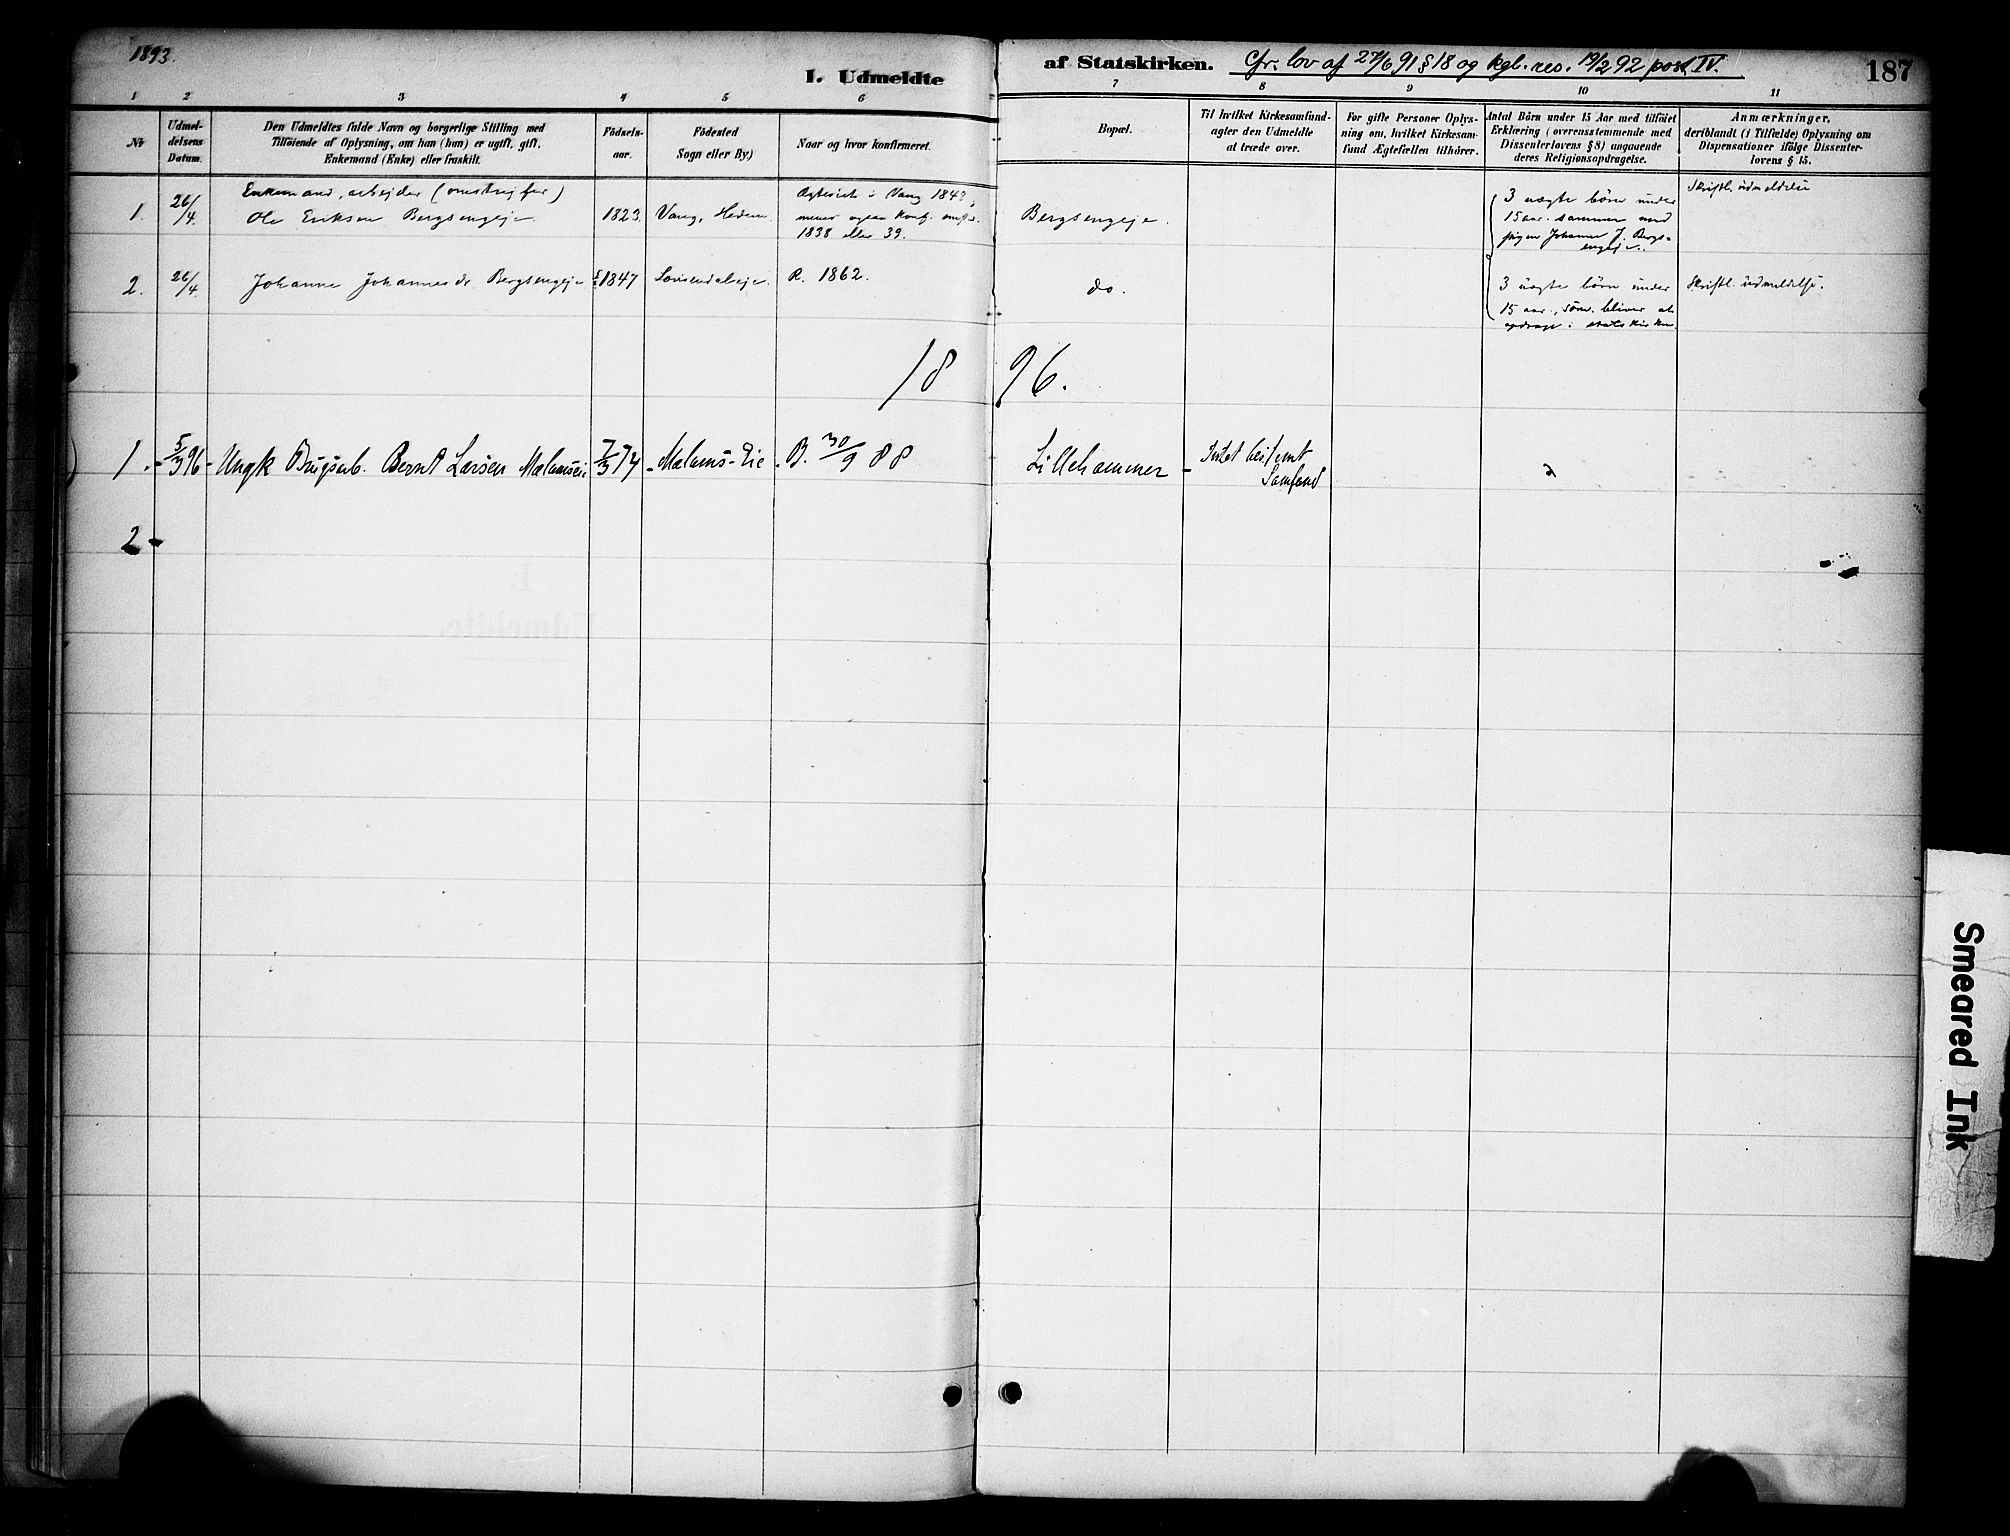 1893.
I. Udmeldte
af Statskirken. Cfr. lov af 27/6 91 § 18 og kgl. res. 19/2 92 post IV.
187
1 2 3 4 5 6 7 8 9 10 11
Nr
Udmel-
delsens
Datum.
Den Udmeldtes fulde Navn og borgerlige Stilling med
Tilföiende af Oplysning, om han (hun) er ugift, gift,
Enkemand (Enke) eller fraskilt.
Födsels-
aar.
Födested
Sogn eller By)
Naar og hvor konfirmeret.
Bopæl.
Til hvilket Kirkesamfund-
agter den Udmeldte
at træde over.
For gifte Personer Oplys-
ning om, hvilket Kirkesam-
fund Ægtefællen tilhörer.
Antal Börn under 15 Aar med tilföiet
Erklæring (overensstemmende med
Dissenterlovens § 8) angaaende
deres Religionsopdragelse.
Anmærkninger,
deriblandt (i Tilfælde) Oplysning om
Dispensationer ifölge Dissenter-
lovens § 15.
1.
26/4.
Enkemand, arbejder (omstrejfer)
Ole Eriksen Bergsengeje.
1823.
Vang, Hedem.
i Vang 1848,
mener ogsaa konf.
1838 eller 39.
Bergsengeje.
3 uægte börn under
15 aar sammen med
pigen Johanne J. Bergs-
engeje.
Skriftl. udmeldelse
2.
26/4.
Johanne Johannesdr. Bergsengeje
1847
R. 1862.
do.
3 uægte börn under
15 aar, som bliver at
opdrage i statskirken
Skriftl. udmeldelse.
1896.
1.
5/3 96
Ungk Brugsarb. Bernt Larsen Mælumseie
7/3 74
Mælums-Eie
B. 30/9 88
Lillehammer
Intet bestemt
Samfund
2
I.
Udmeldte.
Smeared Ink